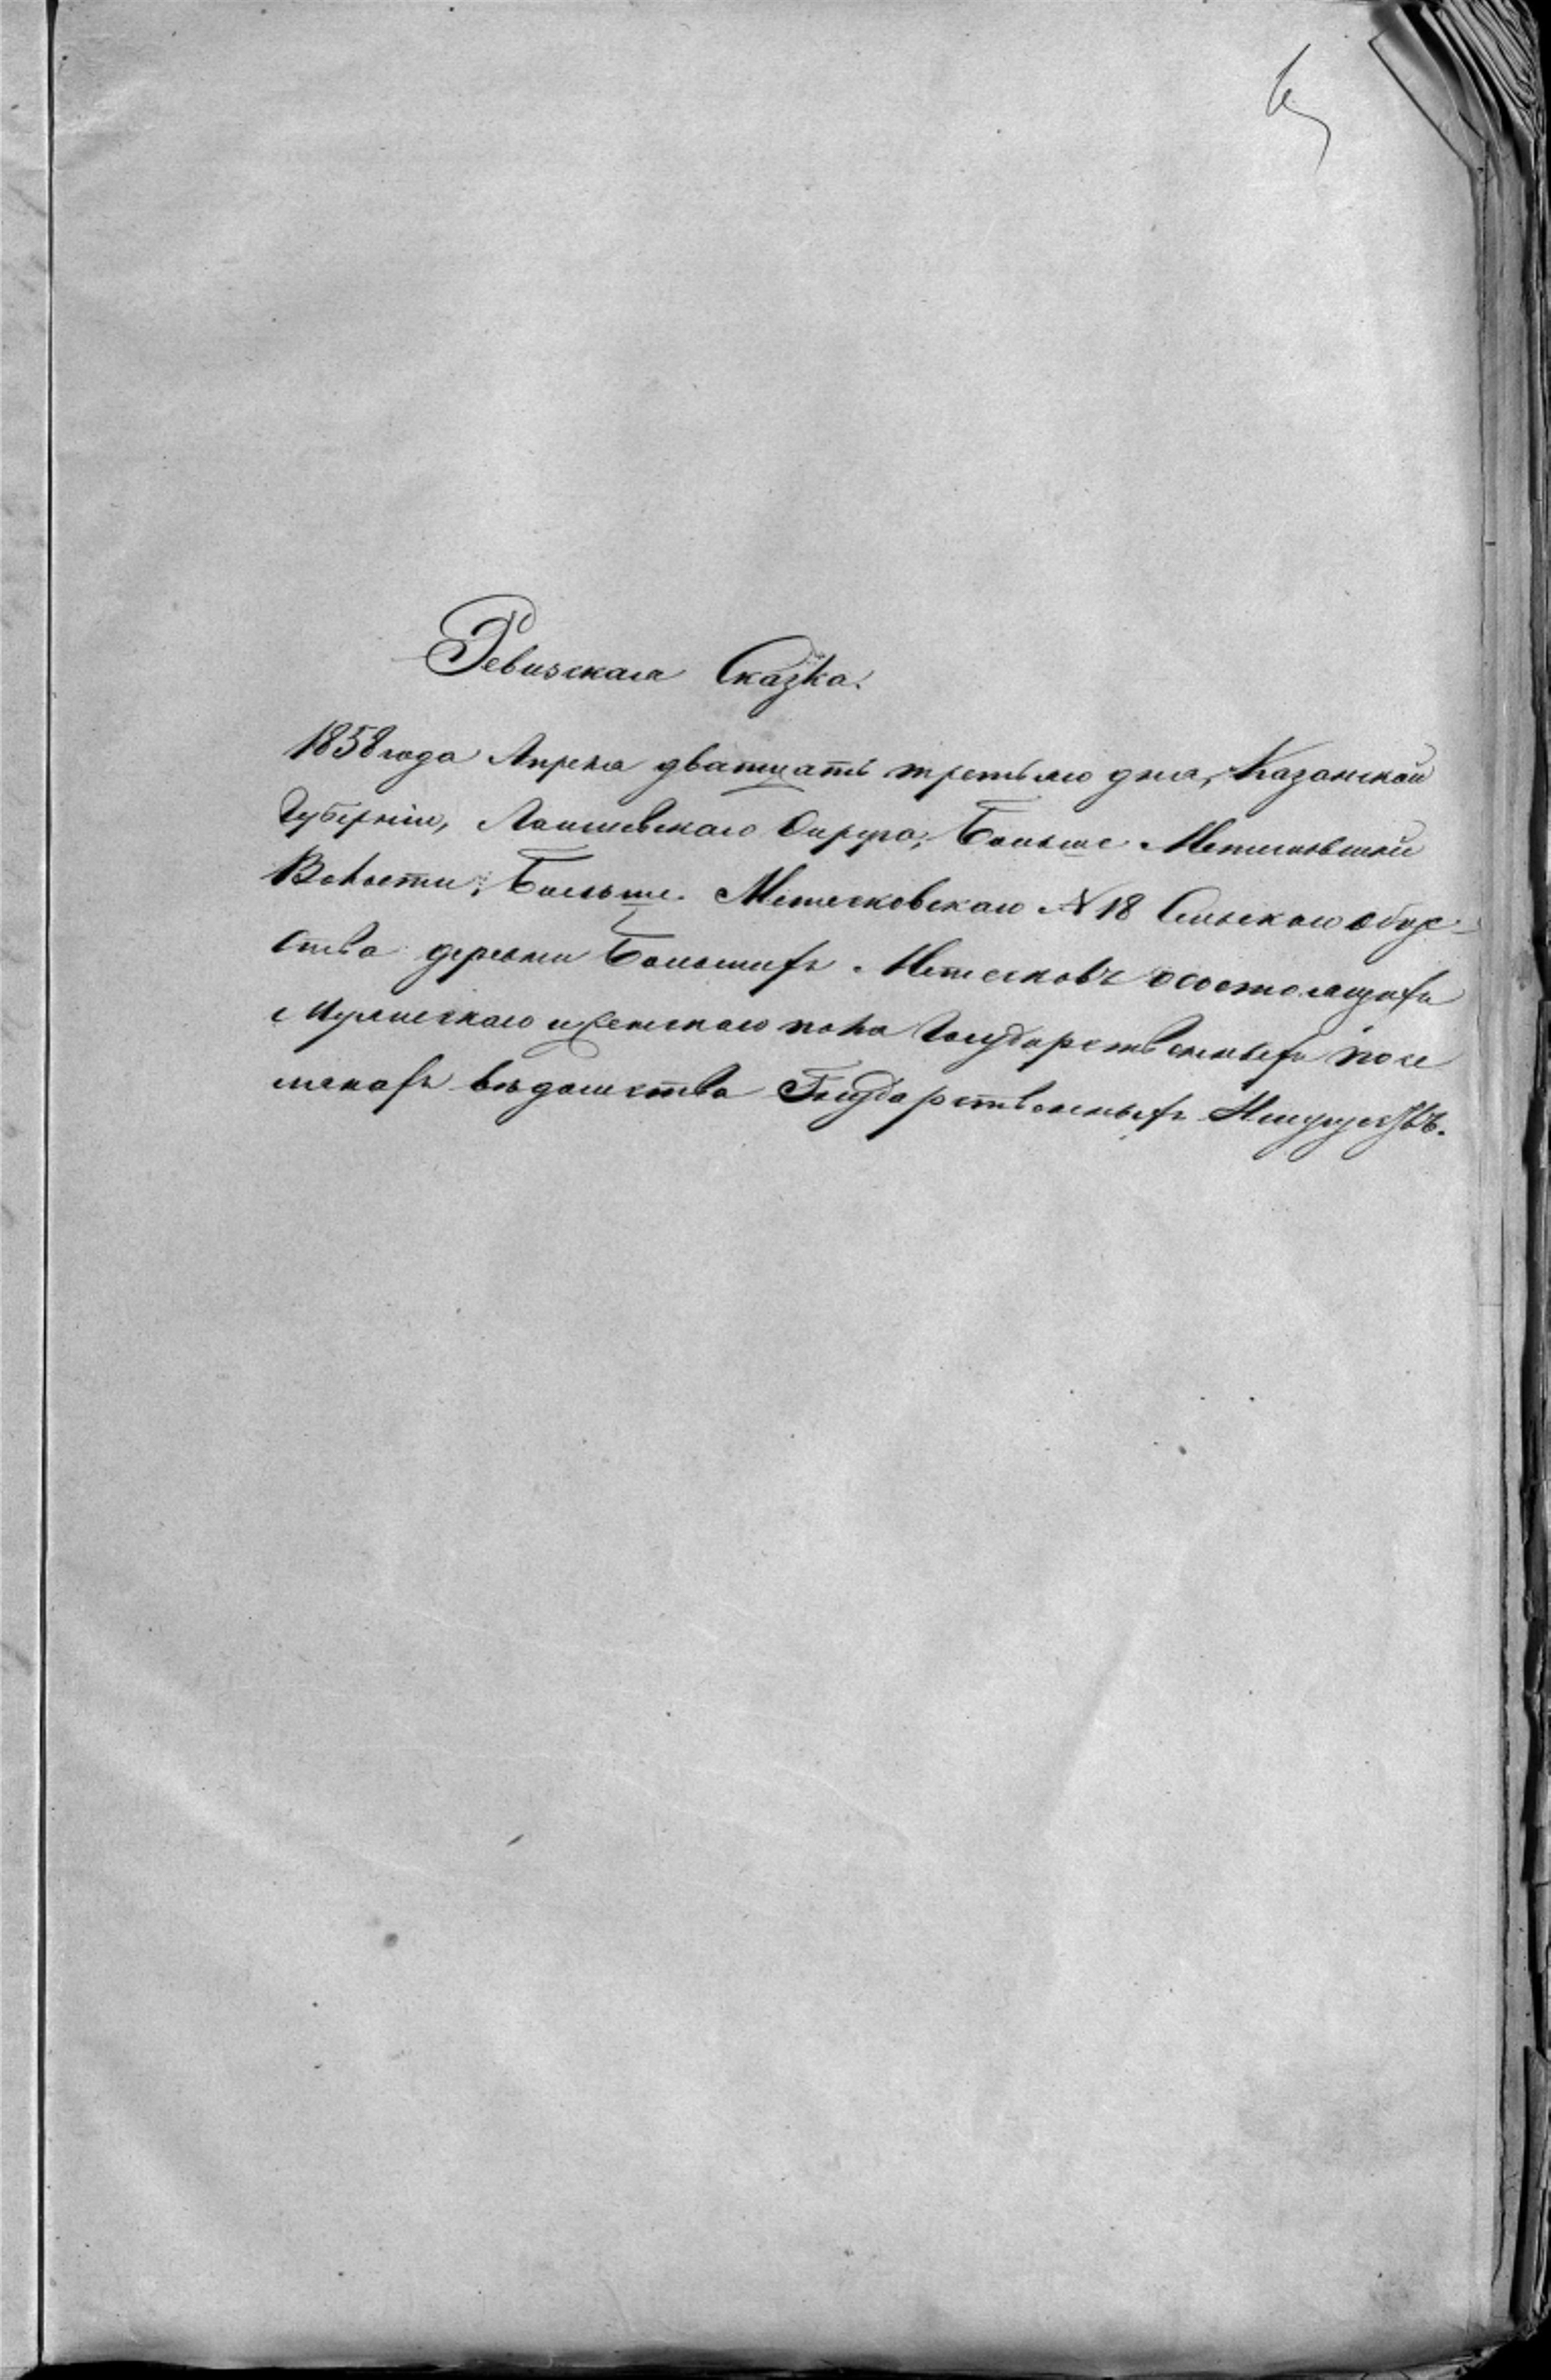 Ревизская Сказка.
1858 года Апреля дватцать третьяго дня, Казанской
Губерніи, Лаишевскаго Округа, Больше Метесковской
Волости, Больше Метесковскаго N 18 Сельскаго обще-
ства деревни Большихъ Метесковъ о состоящихъ
Мужескаго и женскаго пола Государственныхъ посе
лянахъ вѣдомства Государственныхъ Имуществъ.